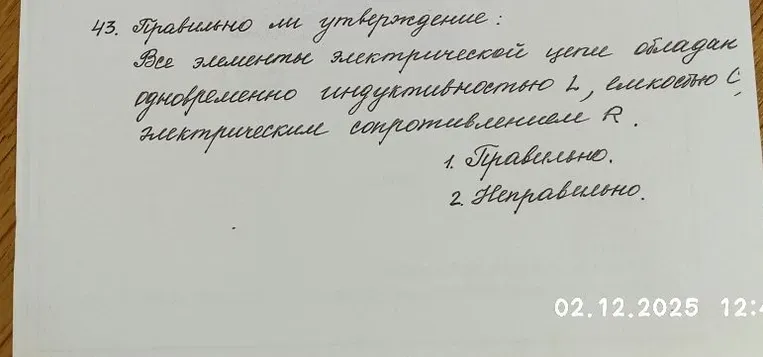 43. Правильно ли утверждение:
Все элементы электрической цепи обладан
одновременно индуктивностью L, емкостью C,
электрическим сопротивлением R.
1. Правильно.
2. Неправильно.
02.12.2025 12:4